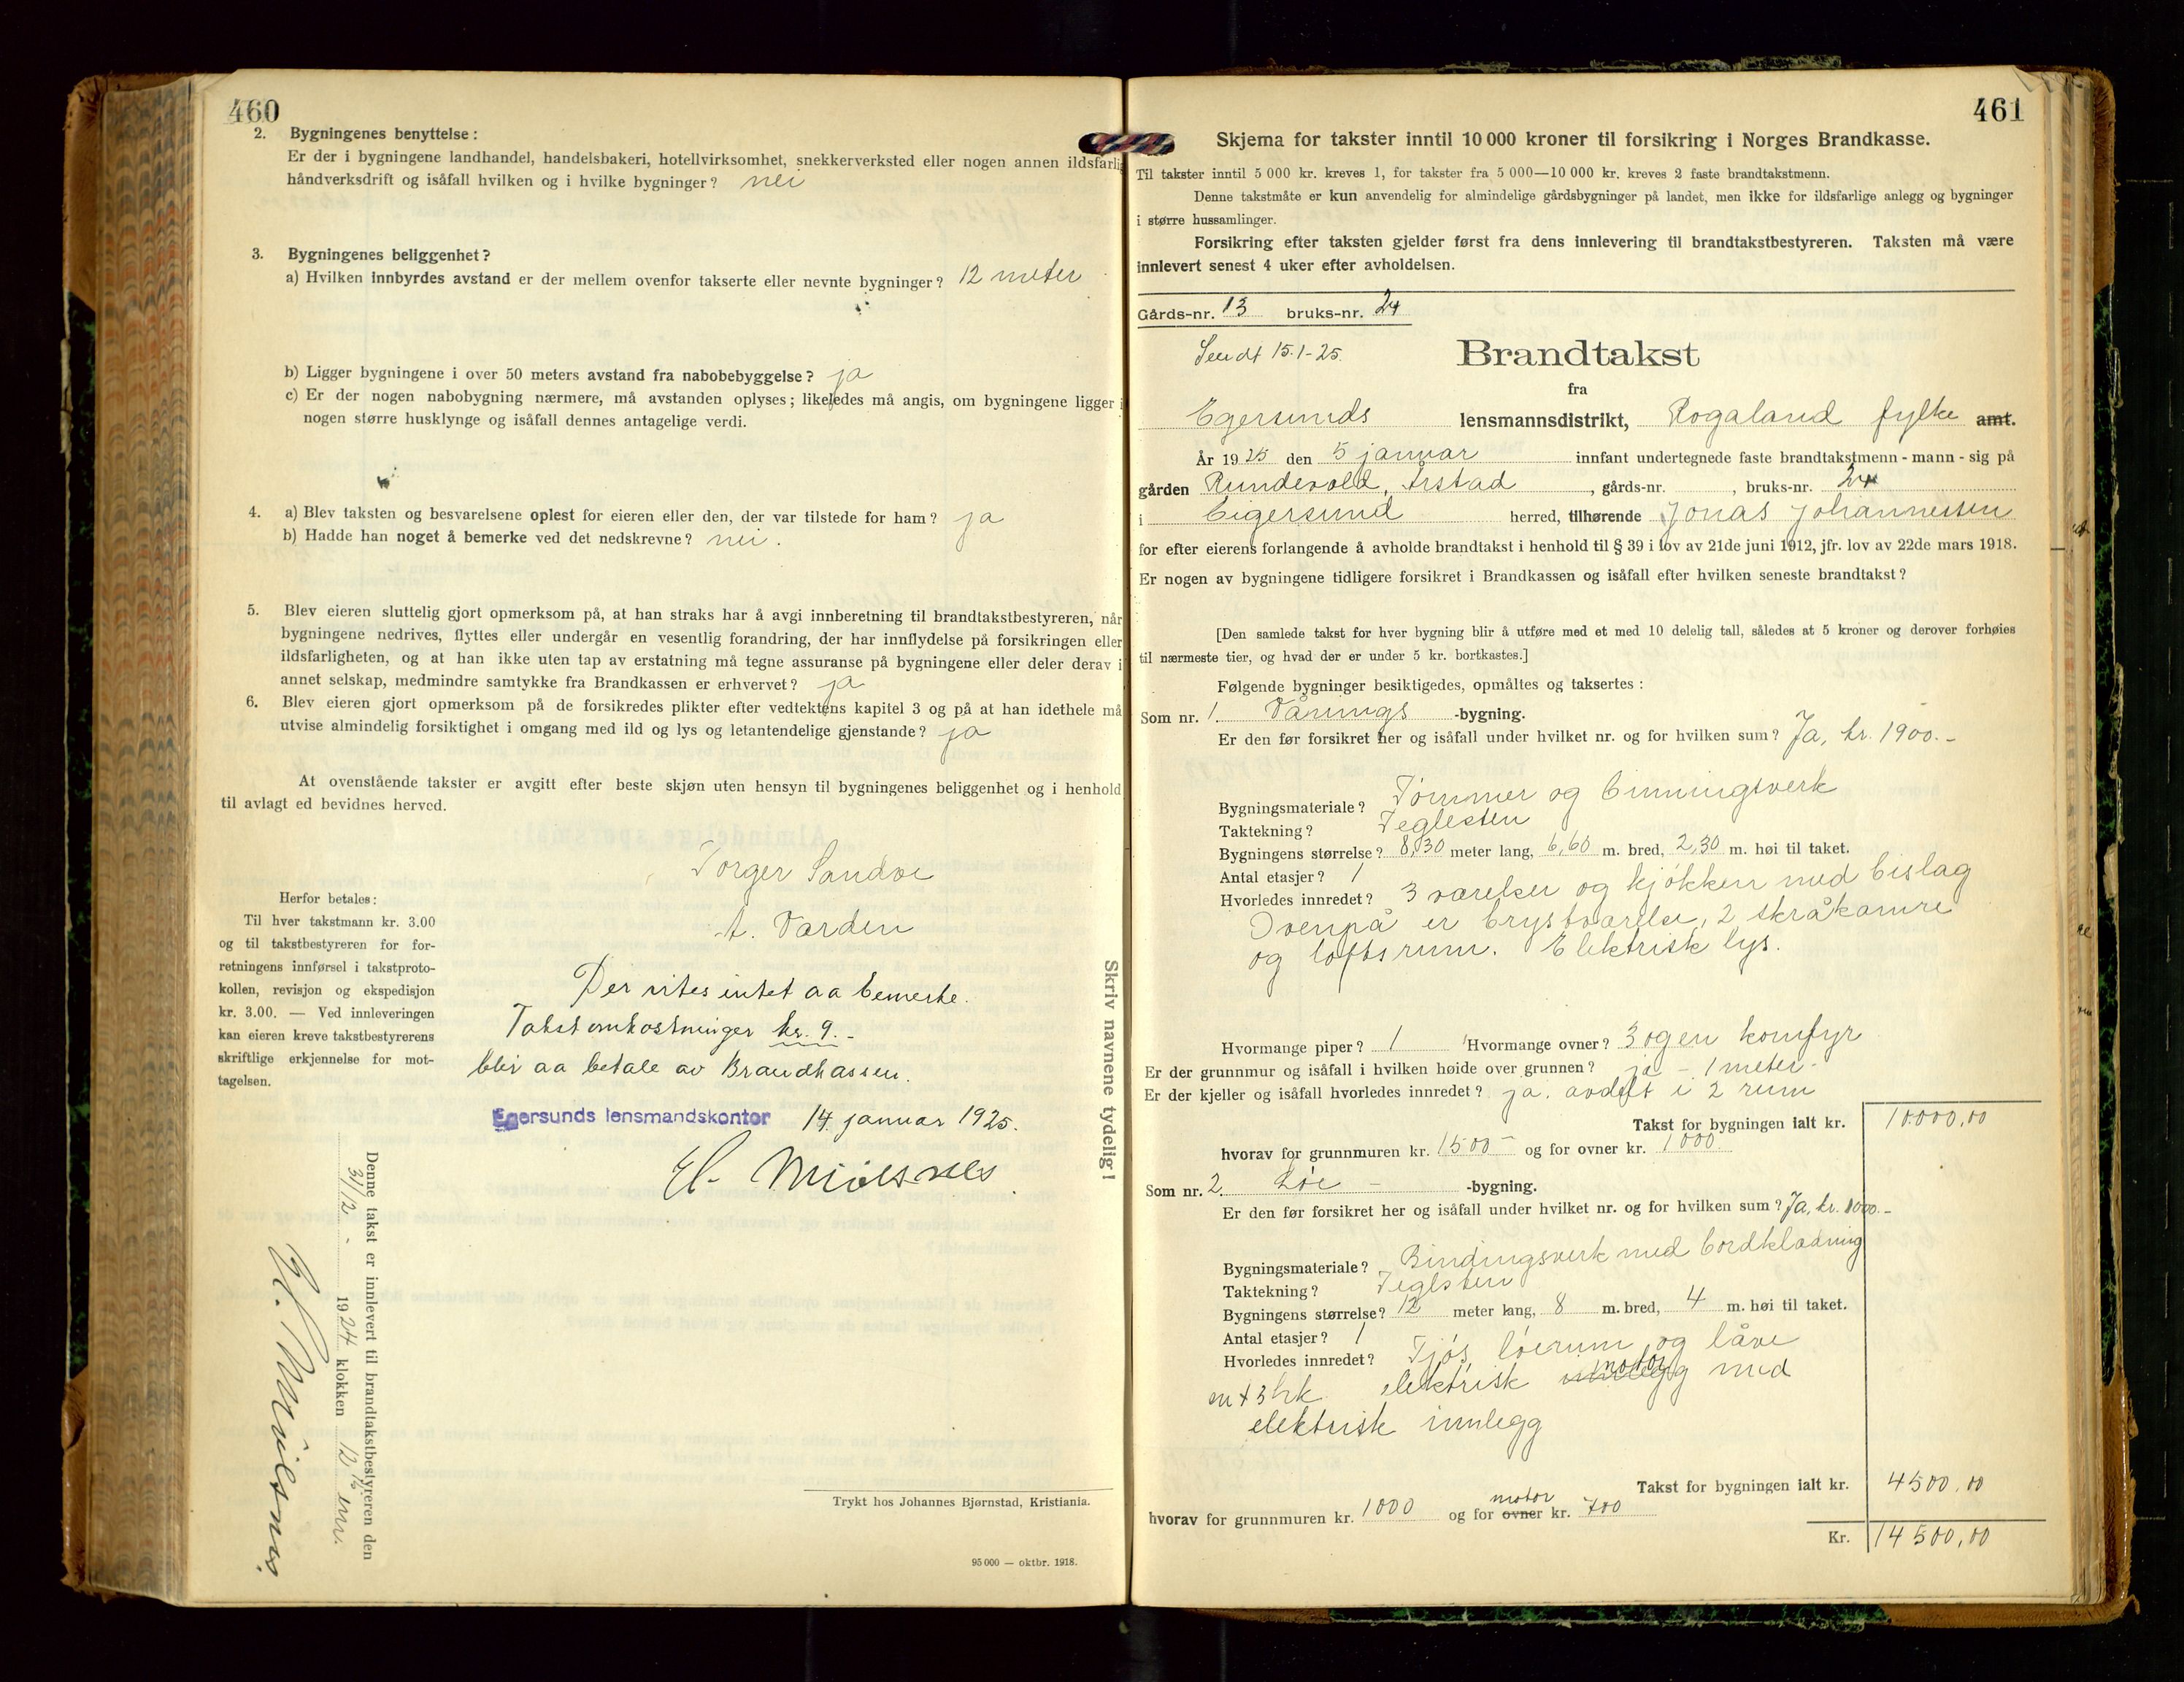 460
2. Bygningenes benyttelse:
Er der i bygningene landhandel, handelsbakeri, hotellvirksomhet, snekkerverksted eller nogen annen ildsfarlig
håndverksdrift og isåfall hvilken og i hvilke bygninger? nei
3. Bygningenes beliggenhet?
a) Hvilken innbyrdes avstand er der mellem ovenfor takserte eller nevnte bygninger? 12 meter
b) Ligger bygningene i over 50 meters avstand fra nabobebyggelse? ja
c) Er der nogen nabobygning nærmere, må avstanden oplyses; likeledes må angis, om bygningene ligger i
nogen større husklynge og isåfall dennes antagelige verdi.
4. a) Blev taksten og besvarelsene oplest for eieren eller den, der var tilstede for ham? ja
b) Hadde han noget å bemerke ved det nedskrevne? nei.
5. Blev eieren sluttelig gjort opmerksom på, at han straks har å avgi innberetning til brandtakstbestyreren, når
bygningene nedrives, flyttes eller undergår en vesentlig forandring, der har innflydelse på forsikringen eller
ildsfarligheten, og at han ikke uten tap av erstatning må tegne assuranse på bygningene eller deler derav i
annet selskap, medmindre samtykke fra Brandkassen er erhvervet? ja
6. Blev eieren gjort opmerksom på de forsikredes plikter efter vedtektens kapitel 3 og på at han idethele må
utvise almindelig forsiktighet i omgang med ild og lys og letantendelige gjenstande? ja
At ovenstående takster er avgitt efter beste skjøn uten hensyn til bygningenes beliggenhet og i henhold
til avlagt ed bevidnes herved.
Torger Sandve
A. Varden
Herfor betales:
Til hver takstmann kr. 3.00
og til takstbestyreren for for-
retningens innførsel i takstproto-
kollen, revisjon og ekspedisjon
kr. 3.00. — Ved innleveringen
kan eieren kreve takstbestyrerens
skriftlige erkjennelse for mot-
tagelsen.
Der vites intet aa bemerke.
Takstomkostninger kr. 9.-
blir aa betale av Brandkassen.
Egersunds lensmandskontor 14. januar 1925.
Denne takst er innlevert til brandtakstbestyreren den
31/12 - 1924 klokken 12 ½ em.
Skriv navnene tydelig!
Trykt hos Johannes Bjørnstad, Kristiania.
95 000 — oktbr. 1918.
461
Skjema for takster inntil 10 000 kroner til forsikring i Norges Brandkasse.
Til takster inntil 5 000 kr. kreves 1, for takster fra 5 000—10 000 kr. kreves 2 faste brandtakstmenn.
Denne takstmåte er kun anvendelig for almindelige gårdsbygninger på landet, men ikke for ildsfarlige anlegg og bygninger
i større hussamlinger.
Forsikring efter taksten gjelder først fra dens innlevering til brandtakstbestyreren. Taksten må være
innlevert senest 4 uker efter avholdelsen.
Gårds-nr. 13 bruks-nr. 24
Sendt 15.1-25.
Brandtakst
fra
Egersunds lensmannsdistrikt, Rogaland fylke amt.
År 1925 den 5 januar innfant undertegnede faste brandtakstmenn - mann - sig på
gården Rundevold, Årstad, gårds-nr. , bruks-nr. 24
i Eigersund herred, tilhørende Jonas Johannessen
for efter eierens forlangende å avholde brandtakst i henhold til § 39 i lov av 21de juni 1912, jfr. lov av 22de mars 1918.
Er nogen av bygningene tidligere forsikret i Brandkassen og isåfall efter hvilken seneste brandtakst?
[Den samlede takst for hver bygning blir å utføre med et med 10 delelig tall, således at 5 kroner og derover forhøies
til nærmeste tier, og hvad der er under 5 kr. bortkastes.]
Følgende bygninger besiktigedes, opmåltes og taksertes:
Som nr. 1. Vånings -bygning.
Er den før forsikret her og isåfall under hvilket nr. og for hvilken sum? Ja, kr. 1900.-
Bygningsmateriale? Tømmer og binningsverk
Taktekning? Teglesten
Bygningens størrelse? 8,30 meter lang, 6,60 m. bred, 2,30 m. høi til taket.
Antal etasjer? 1
Hvorledes innredet? 3 værelser og kjøkken med bislag
Ovenpå er brystværelse, 2 skråkamre
og loftsrum. Elektrisk lys.
Hvormange piper? 1 Hvormange ovner? 3 og en komfyr
Er der grunnmur og isåfall i hvilken høide over grunnen? ja - 1 meter-
Er der kjeller og isåfall hvorledes innredet? ja. avdelt i 2 rum
Takst for bygningen ialt kr. 10.000,00
hvorav for grunnmuren kr. 1500 - og for ovner kr. 1000
Som nr. 2. Løe - -bygning.
Er den før forsikret her og isåfall under hvilket nr. og for hvilken sum? Ja, kr. 1000.-
Bygningsmateriale? Bindingsverk med bordklædning
Taktekning? Teglsten
Bygningens størrelse? 12 meter lang, 8 m. bred, 4 m. høi til taket.
Antal etasjer? 1
Hvorledes innredet? Fjøs, løerum og låve
m + 3 hk. elektrisk innlegg motor med
elektrisk innlegg
Takst for bygningen ialt kr. 4500,00
hvorav for grunnmuren kr. 1000 og for ovner motor kr. 700
Kr. 14500,00